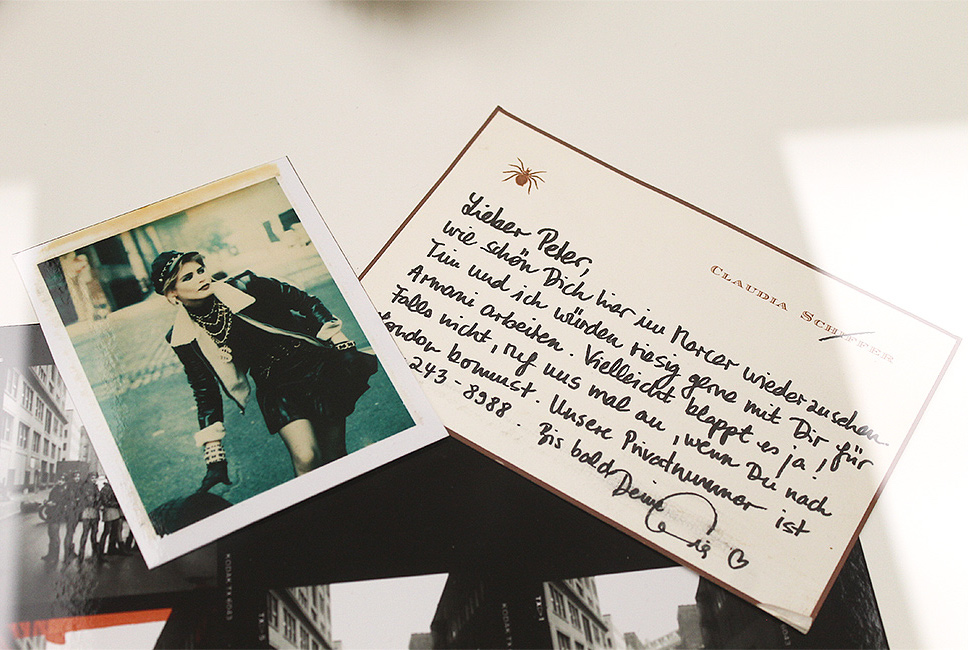 CLAUDIA SCHIFFER
Lieber Peter,
wie schön Dich hier im Mercer wiederzusehen.
Tim und ich würden riesig gerne mit Dir für
Armani arbeiten. Vielleicht klappt es ja!
Falls nicht, ruf uns mal an, wenn Du nach
London kommst. Unsere Privatnummer ist
243-8988.
Bis bald
Deine
KODAK TX 6043
KODAK TX